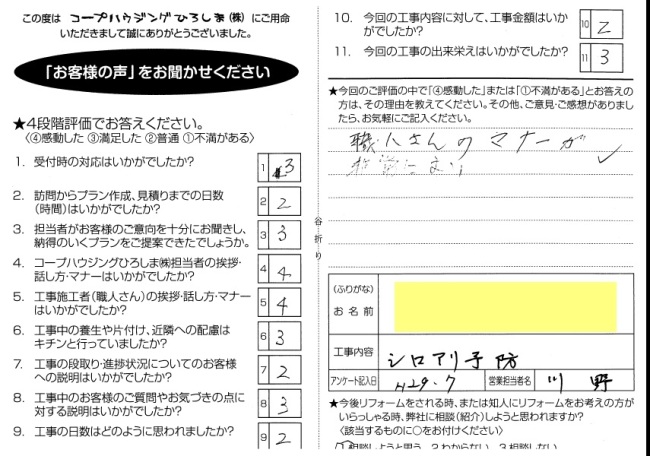 この度は コープハウジングひろしま(株) にご用命
いただきまして誠にありがとうございました。
「お客様の声」をお聞かせください
★4段階評価でお答えください。
〈④感動した ③満足した ②普通 ①不満がある〉
1. 受付時の対応はいかがでしたか?
1 3
2. 訪問からプラン作成、見積りまでの日数
(時間)はいかがでしたか?
2 2
3. 担当者がお客様のご意向を十分にお聞きし、
納得のいくプランをご提案できたでしょうか。
3 3
4. コープハウジングひろしま㈱担当者の挨拶・
話し方・マナーはいかがでしたか?
4 4
5. 工事施工者(職人さん)の挨拶・話し方・マナー
はいかがでしたか?
5 4
6. 工事中の養生や片付け、近隣への配慮は
キチンと行っていましたか?
6 3
7. 工事の段取り・進捗状況についてのお客様
への説明はいかがでしたか?
7 2
8. 工事中のお客様のご質問やお気づきの点に
対する説明はいかがでしたか?
8 3
9. 工事の日数はどのように思われましたか?
9 2
谷折り
10. 今回の工事内容に対して、工事金額はいか
がでしたか?
10 2
11. 今回の工事の出来栄えはいかがでしたか?
11 3
★今回のご評価の中で「④感動した」または「①不満がある」とお答えの
方は、その理由を教えてください。その他、ご意見・ご感想がありました
ら、お気軽にご記入ください。
職人さんのマナーが
(ふりがな)
お名前
工事内容 シロアリ予防
アンケート記入日 H29.7 営業担当者名 川野
★今後リフォームをされる時、または知人にリフォームをお考えの方が
いらっしゃる時、弊社に相談(紹介)しようと思われますか?
〈該当するものに○をお付けください〉
1.相談しようと思う 2.わからない 3.相談しない